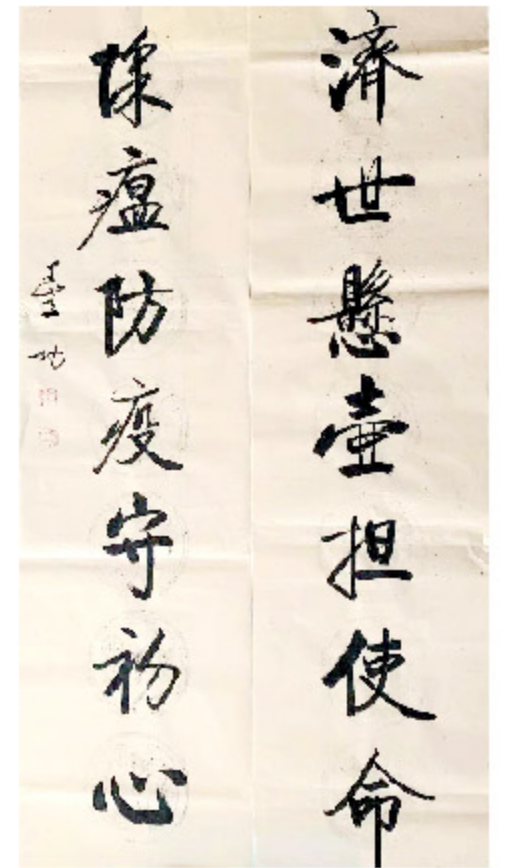 濟世懸壺担使命
除瘟防疫守初心